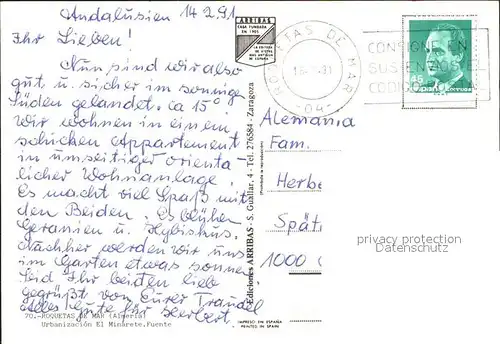 Andalusien 14.2.91
Ihr Lieben!
Nun sind wir also
gut u. sicher im sonnigen
Süden gelandet. ca 15°
Wir wohnen in einem
schicken Appartement
in umseitiger orienta-
lischer Wohnanlage.
Es macht viel Spaß mit
den Beiden. Es blühen
Geranien u. Hybiskus.
Nachher werden wir uns
im Garten etwas sonnen.
Seid Ihr beiden lieb
gegrüßt von Eurer Traudel
Alles Gute für Herbert
70.-ROQUETAS DE MAR (Almería)
Urbanización El Minarete. Fuente
ARRIBAS
CASA FUNDADA
EN 1905
Ediciones ARRIBAS - S. Guallar, 4 - Tel. 276584 - Zaragoza
(Prohibida la reproducción)
IMPRESO EN ESPAÑA
PRINTED IN SPAIN
ROQUETAS DE MAR
-04-
CONSIGNE EN
SUS ENVIOS EL
CODIGO
España
correos
Alemania
Fam.
Herbe
Spät
1000
privacy protection
Datenschutz